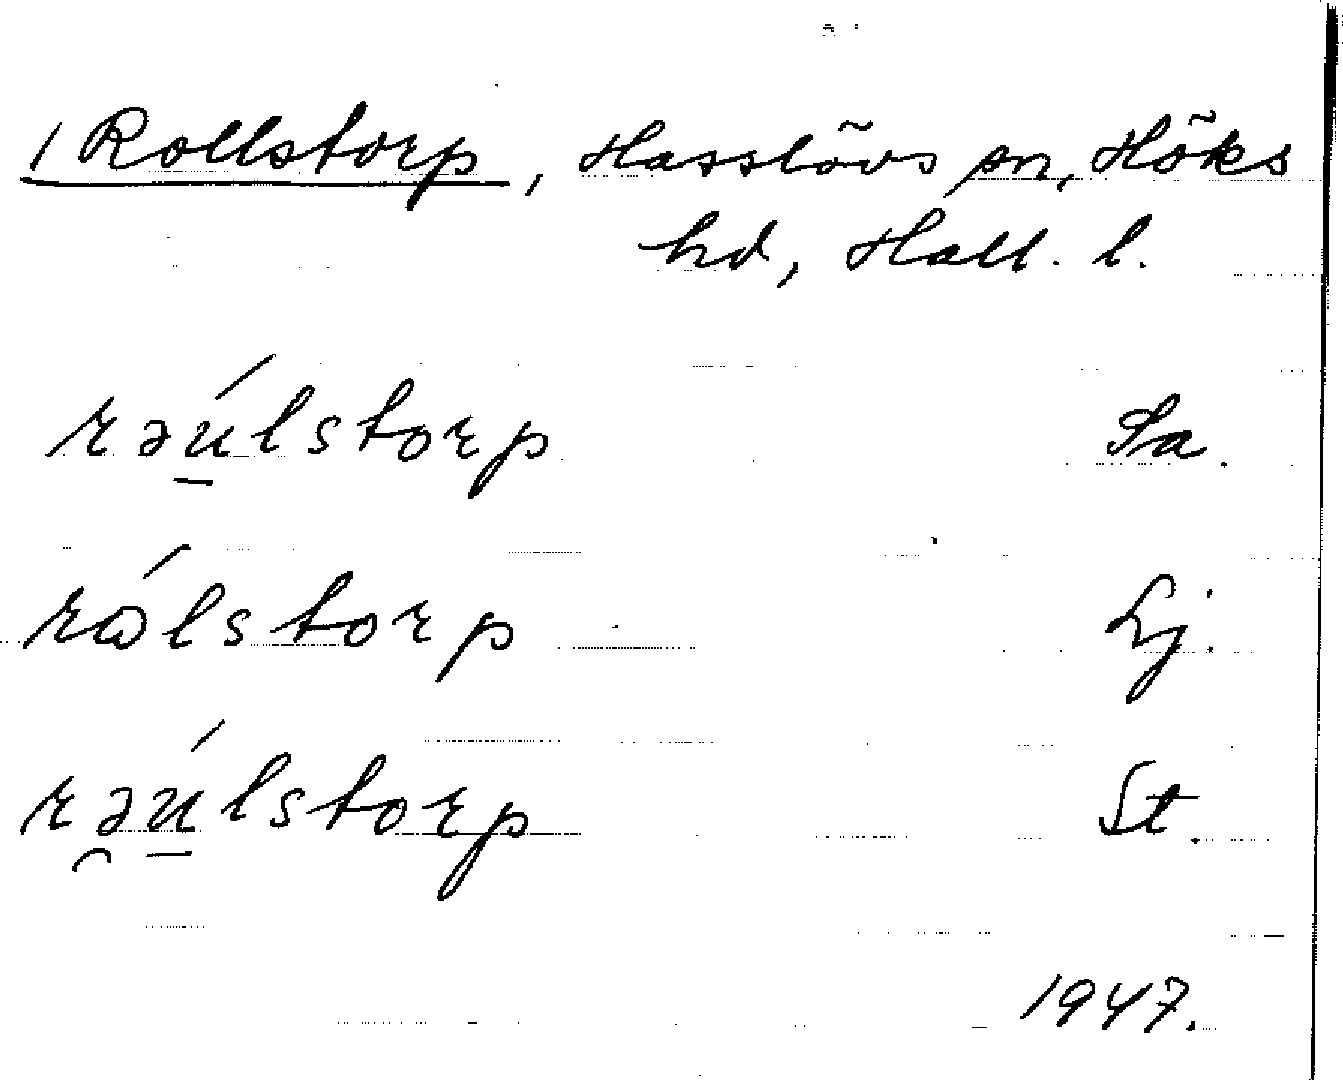 / Rollstorp, Hasslövs sn, Höks
hd, Hall. l.
rəú̲lstorp Sa.
rɷ́lstorp Lj.
rə̯ú̲lstorp St.
1947.